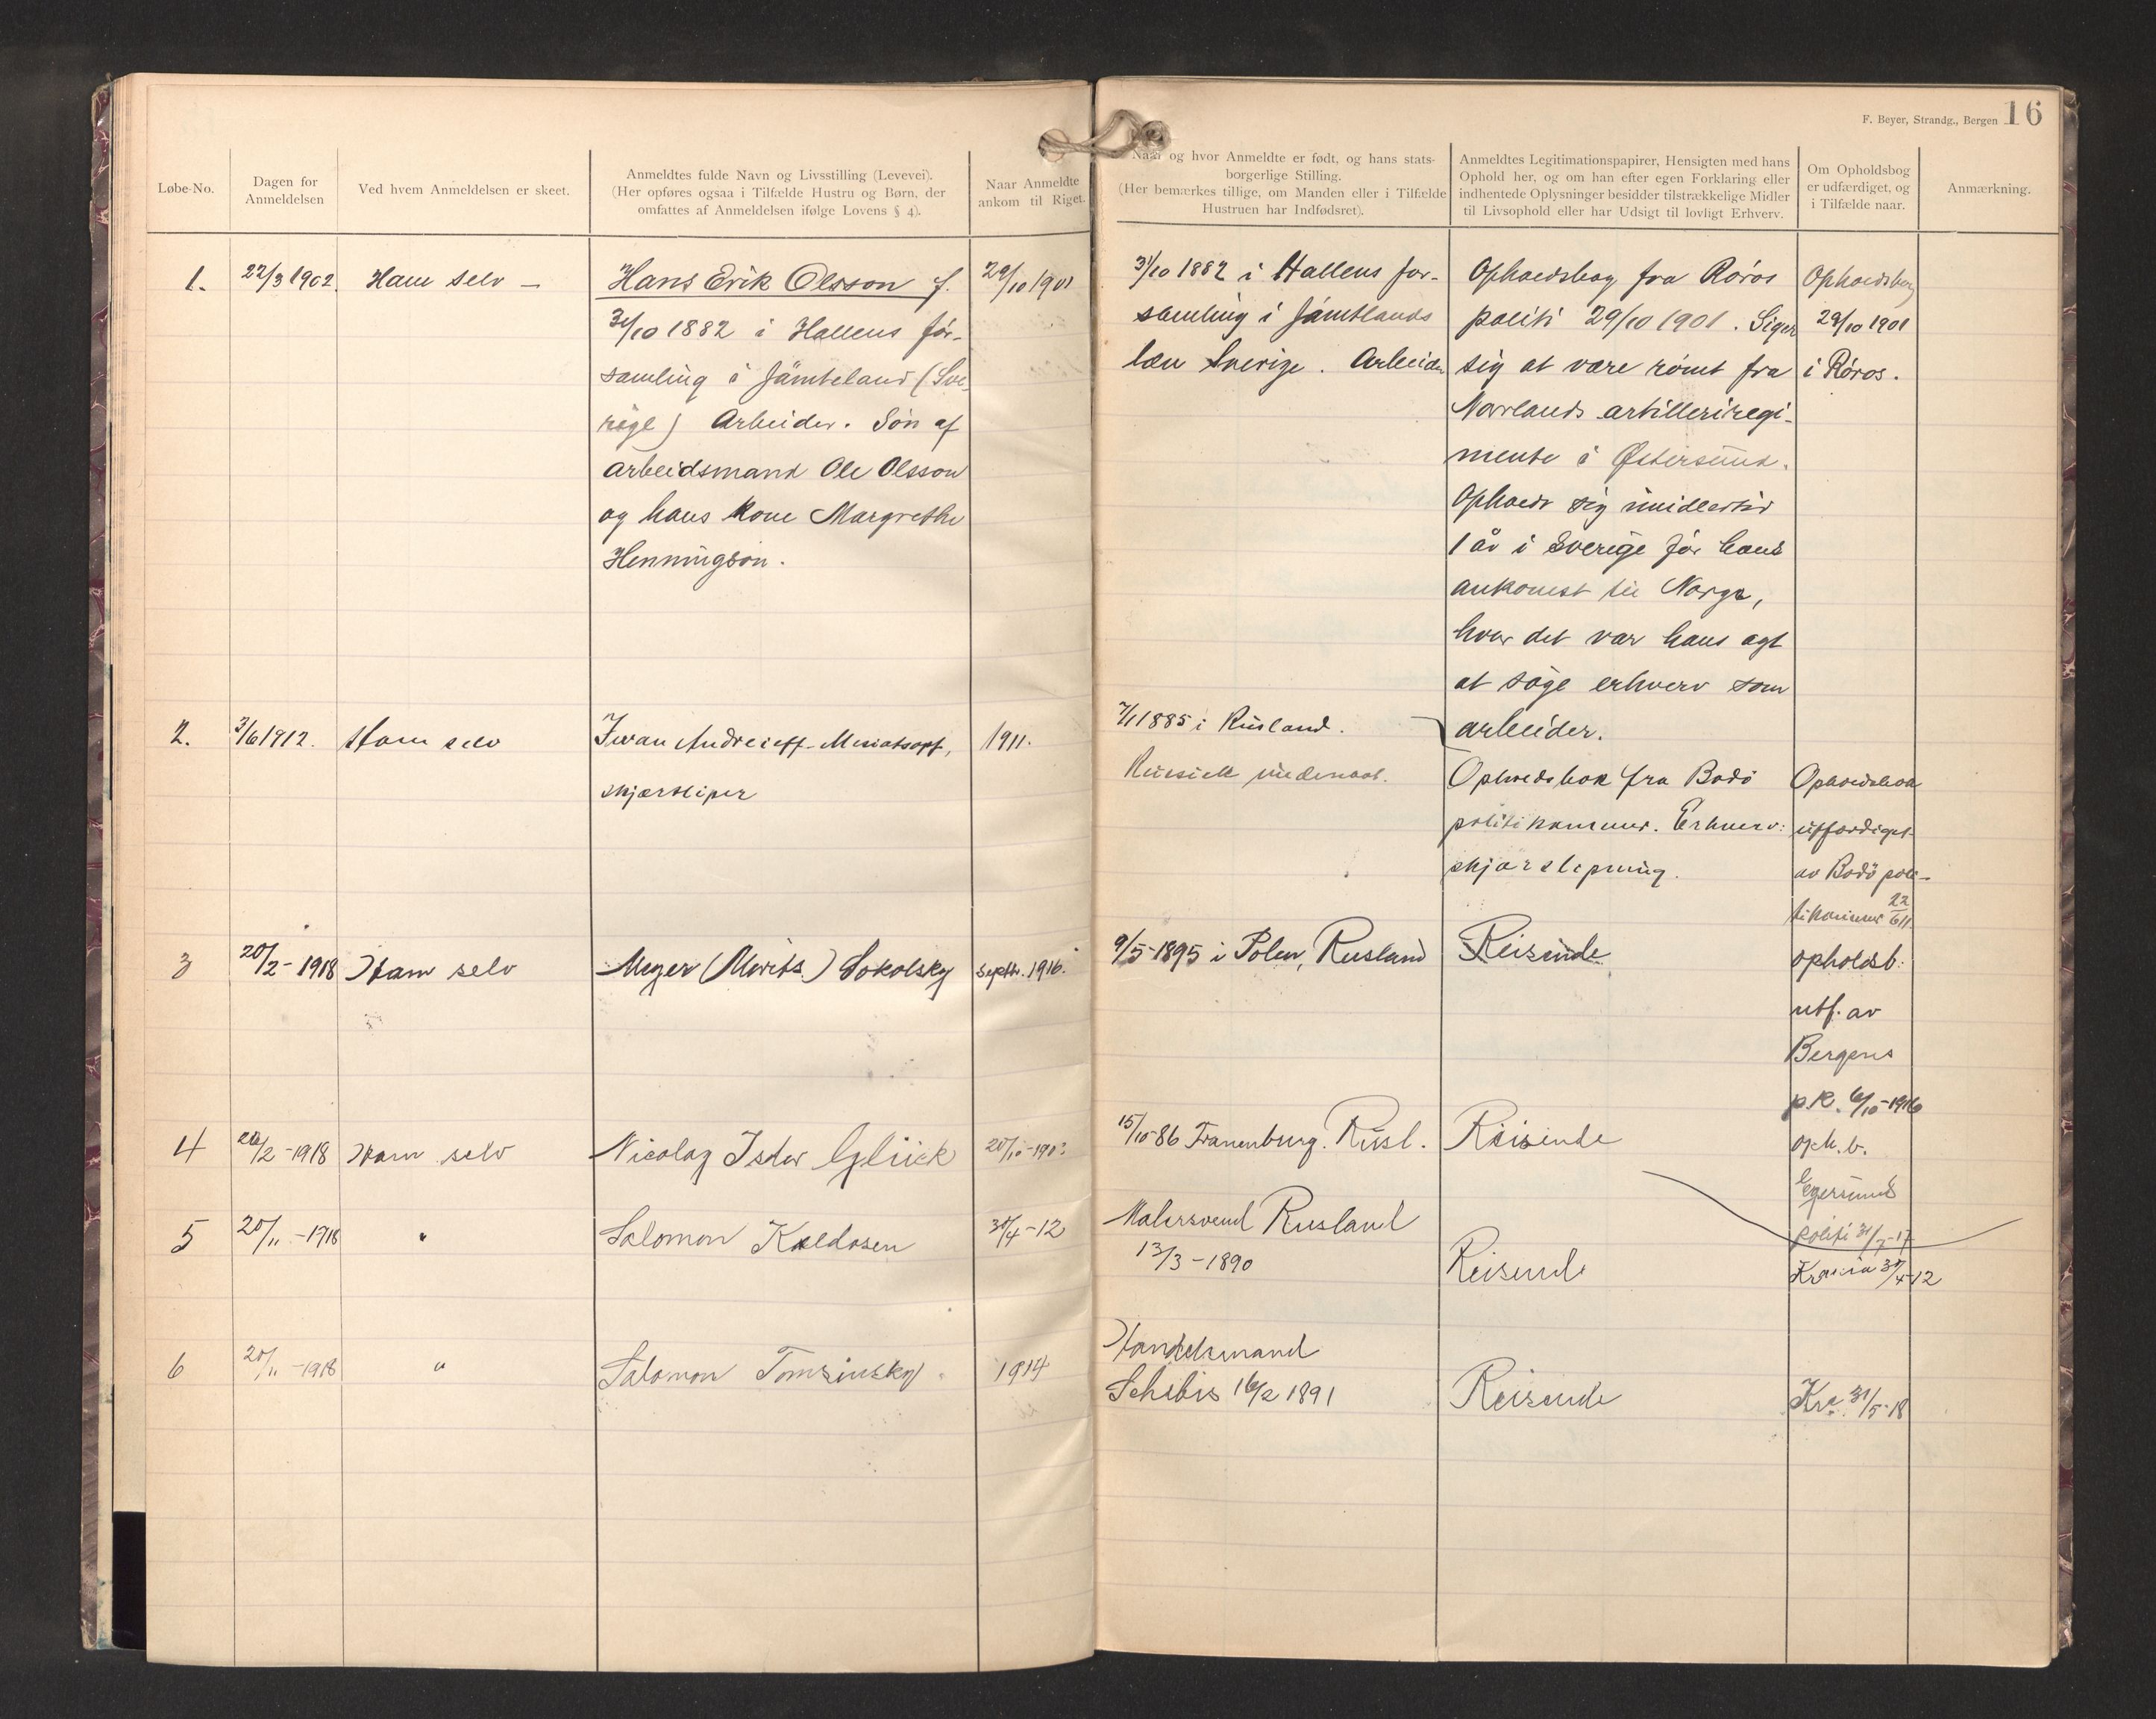 F. Beyer, Strandg., Bergen 16
Løbe-No.
Dagen for
Anmeldelsen
Ved hvem Anmeldelsen er skeet.
Anmeldtes fulde Navn og Livsstilling (Levevei).
(Her opføres ogsaa i Tilfælde Hustru og Børn, der
omfattes af Anmeldelsen ifølge Lovens § 4).
Naar Anmeldte
ankom til Riget.
Naar og hvor Anmeldte er født, og hans stats-
borgerlige Stilling.
(Her bemærkes tillige, om Manden eller i Tilfælde
Hustruen har Indfødsret).
Anmeldtes Legitimationspapirer, Hensigten med hans
Ophold her, og om han efter egen Forklaring eller
indhentede Oplysninger besidder tilstrækkelige Midler
til Livsophold eller har Udsigt til lovligt Erhverv.
Om Opholdsbog
er udfærdiget, og
i Tilfælde naar.
Anmærkning.
1.
22/3 1902.
Ham selv —
Hans Erik Olsson f.
31/10 1882 i Hallens før-
samling i Jämteland (Sve
rige) Arbeider. Søn af
arbeidsmand Ole Olsson
og hans kone Margrethe
Henningson.
29/10 1901
31/10 1882 i Hallens for-
samling i Jämtlands
læn Sverige. Arbeider
Opholdsbog fra Røros
politi 29/10 1901. Siger
sig at være rømt fra
Norrlands artilleriregi-
mente i Østersund.
Opholdt sig imidlertid
1 år i Sverige før hans
ankomst til Norge,
hvor det var hans agt
at søge erhverv som
arbeider.
Opholdsbog
29/10 1901
i Røros.
2.
3/6 1912.
Ham selv
Iwan Andreieff
skjærsliper
1911.
7/1 1885 i Rusland.
Russisk undersaat.
Opholdsbok fra Bodø
politikammer. Erhverv:
skjærsliping.
Opholdsbok
utfærdiget
av Bodø poli-
tikammer 22/6 11
3
20/2-1918
Ham selv
Meyer (Morits) Sokolsky
Septbr. 1916.
9/5-1895 i Polen, Rusland
Reisende
opholdsb.
utf. av
Bergens
p.k. 6/10-1916
4
20/2-1918
Ham selv
Nicolay Isder Glück
15/10-86 Frauenburg. Rusl.
Reisende
oph. b.
Egersund
politi 31/7-17
5
20/11-1918
"
Salomon Koldosen
30/4-12
Malersvend Rusland
13/3-1890
Reisende
Kr.ania 30/4-12
6
20/11-1918
"
Salomon Tomsinsky.
1914
Handelsmand
Schebis 16/2 1891
Reisende
Kra. 31/5-18